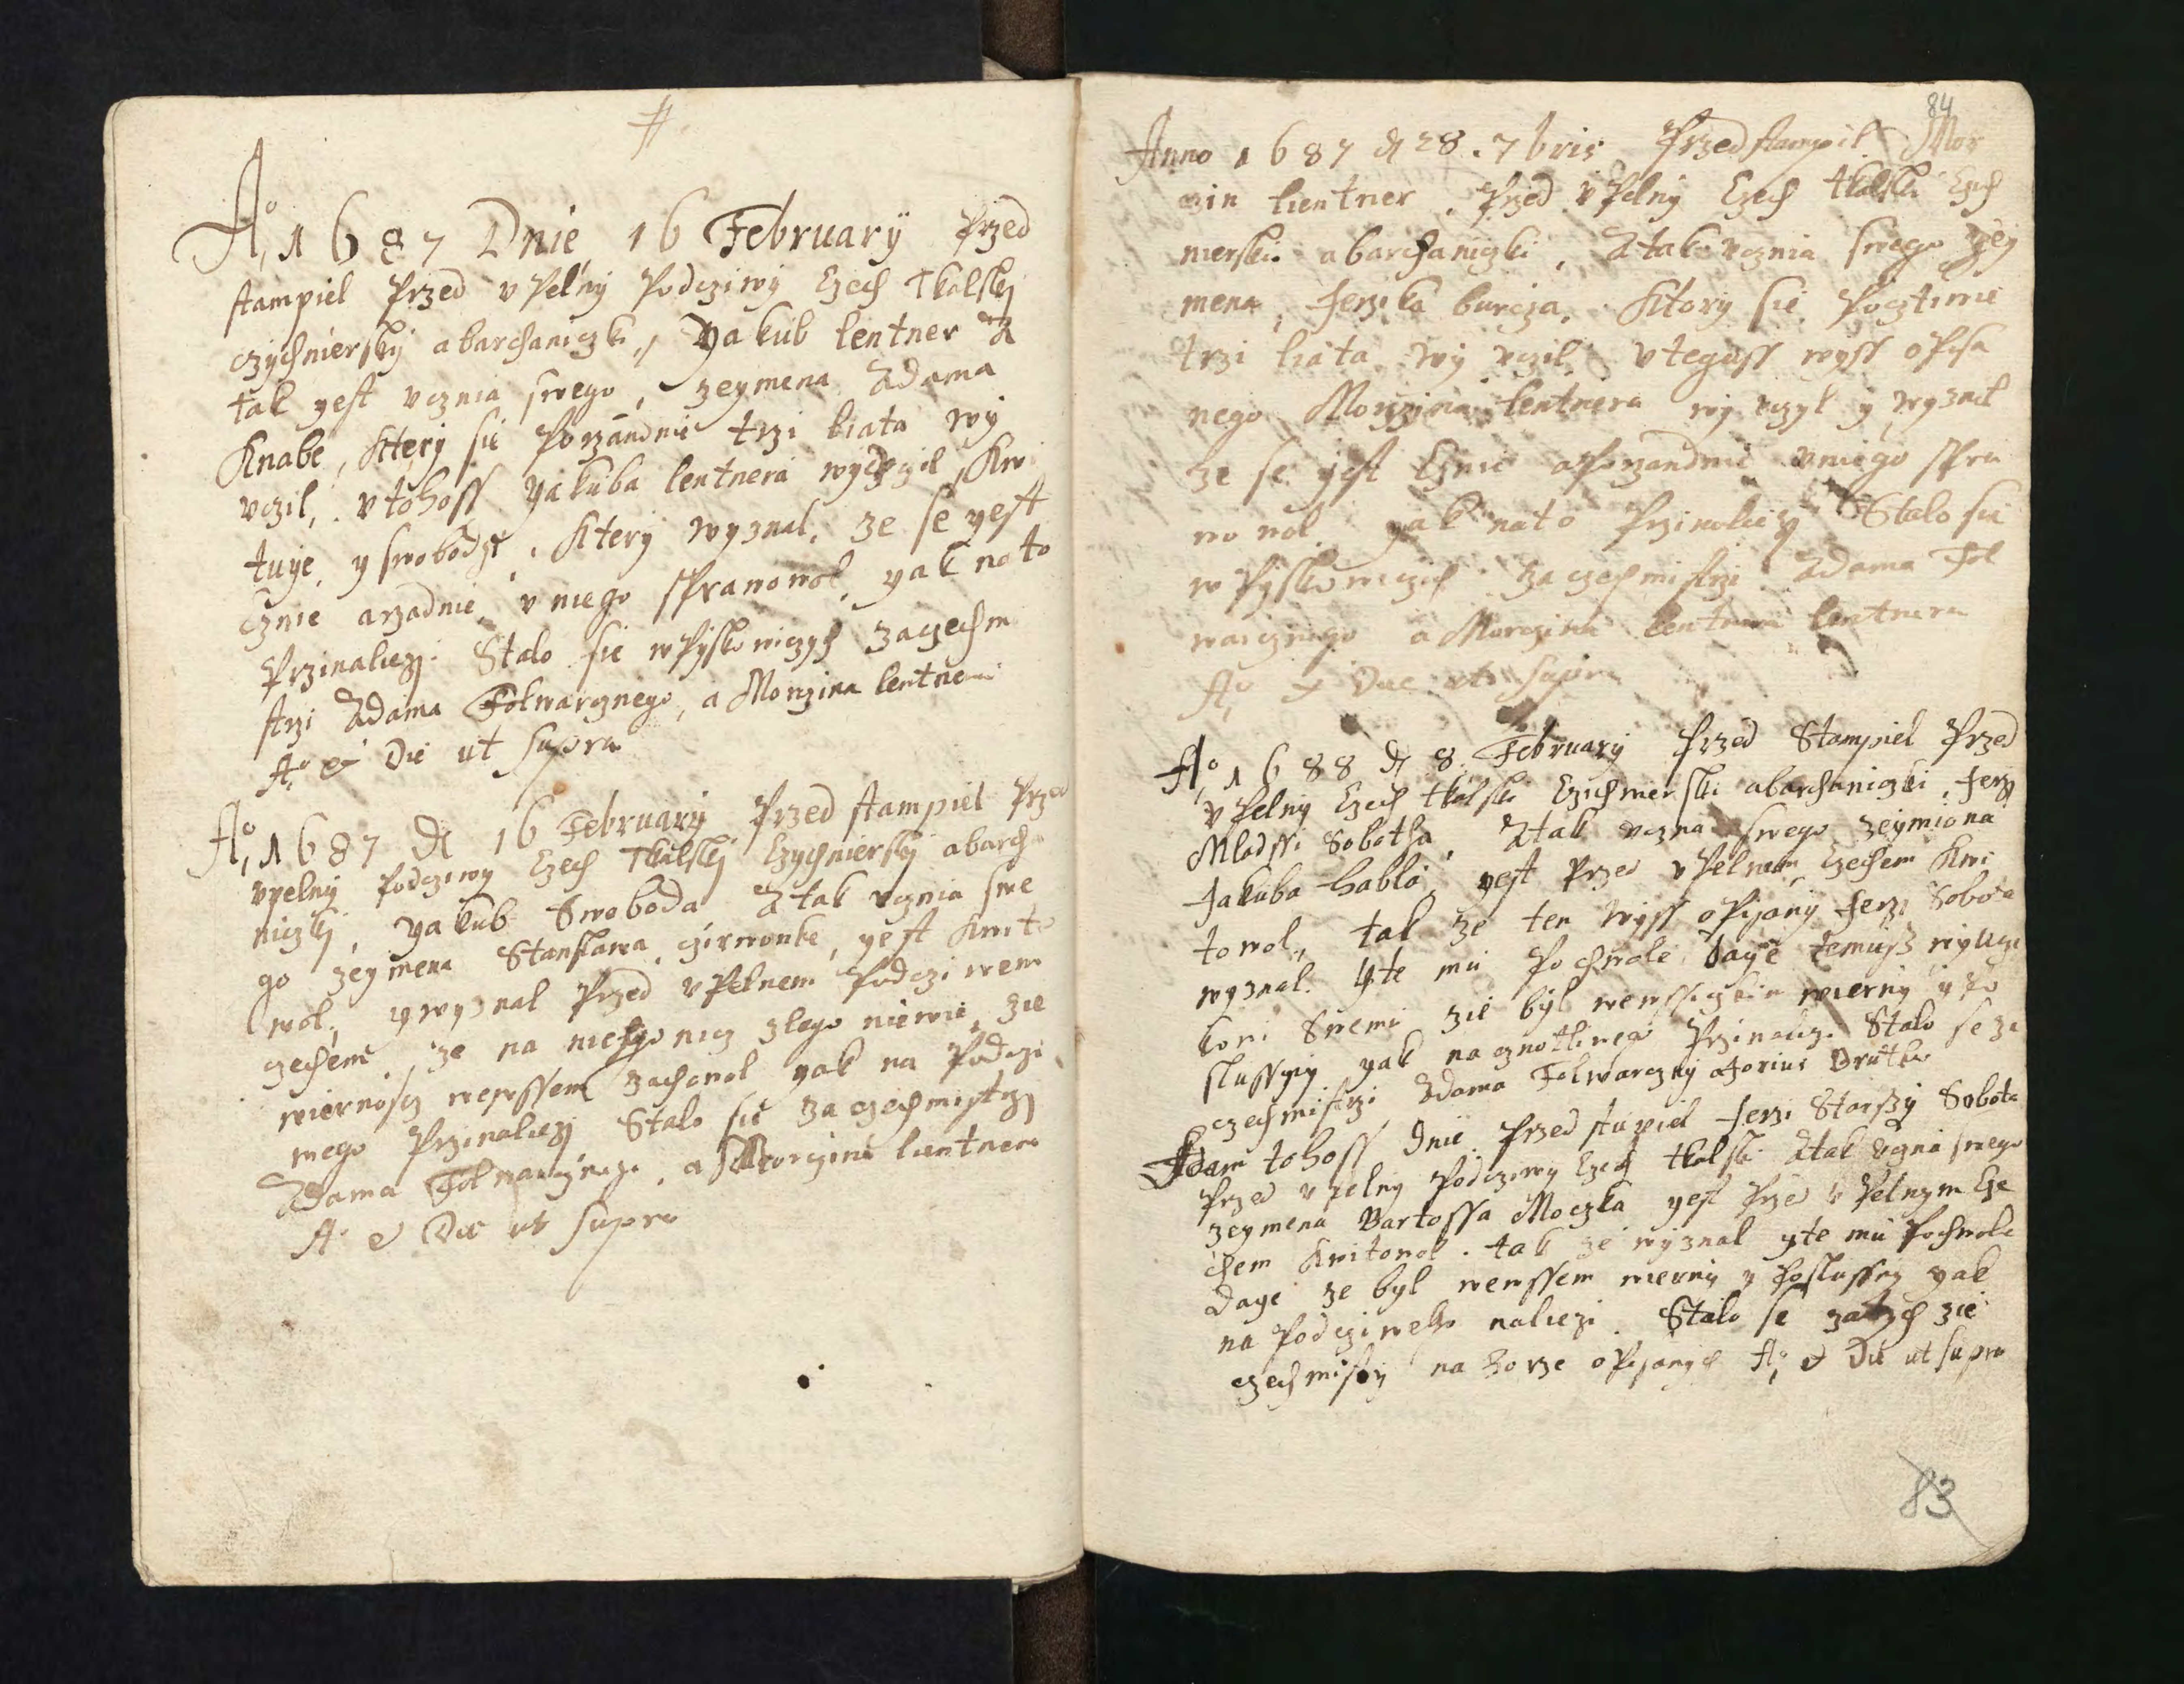 #.
Ao, 1687 Dnie 16 February Przed
stampiel Przed vPelny Podcziwy Czech Tkalsky
czychniersky abarchaniczki, Yakub lentner A
tak yest vcznia swego, zeymena Adama
Knabe, Ktery sie Porzandnie trzi liata wy
vczil, vtohoss Yakuba lentnera wyvczil, Kwi
tuye, y swobodze, Ktery wyznal, ze se yest
Cznie arzadnie v niego sprawowol, yak na to
Przinaliezj. Stalo sie wPyskowiczych zaczechm
strzi Adama Folwarcznego, a Morczina lentnera
Ao & Die ut supra
Ao, 1687 D 16 February Przed stampiel Przed
vpelny Podcziwy Czech Tkalskj Czychniersky abarcha
niczkj, Yakub Swoboda Atak vcznia swe
go zeymena Stanslawa czirwonke, yest Kwito
wol, y wyznal Przed vPelnem Podcziwem
czechem, ze na niehgo nicz zlego niewie, zie
wiernoscz wewssem zachowol yak na Podczi
wego Przinaliezj Stalo sie za czechmistrzj
Adama Folwarcznego, a Morczina lientnera
Ao & Die ut supra
84
Anno 1687 D 28. 7bris Przedstampil Mor
czin lientner. Przed vPelny Czech tkalski Czich
nierski abarchaniczki, Atak vcznia swego zey
mena, Jerzika burcza. Ktory sie Pocztiwie
trzi liata wy vczil, vtegoss wyss oPisa
nego Morczina lentnera wy vczyl y wyznal
ze se yest Cznie aPorzandnie vniego spra
wowol yak nato Przinaliezy Stalo sie
wPyskowiczich za czechmistrzi Adama Fol
warcznego a Morczina lentnera
Ao & Die ut supra
Ao, 1688 D 8. February Przed Stampiel Przed
vPelny Czech tkalski Czichnierski abarchaniczki, Jerzy
Mlodssi Sobotka, Atak vczna swego zeymiona
Jakuba habla, yest Przed vPelnem Czechem Kwi
towol, tak ze ten wyss oPisany Jerzi Sobota
wyznal. Yte mu Pochwale daye temuss wyucze
kowi swemu zie byl wewssiczkim wierny y Po
slussny yak na cznotliwego Przinaliezi Stalo se za
czechmistrzi Adama Folwarczny a Jorius Brutka
Idem tohoss Dnie Przed stupiel Jerzi Starszy Sobota
Przed vpelny Podcziwy Czech tkalski Atak vczna swego
zeymena Bartossa Moczka yest Przed vPelnym Cze
chem Kwitowol. tak ze wyznal yte mu Pochwale
daye ze byl wewssem wierny y Poslussny yak
na Podcziweho naliezi. Stalo se zatych zie
czechmistry na horze oPisanych Ao & Die ut supra
83